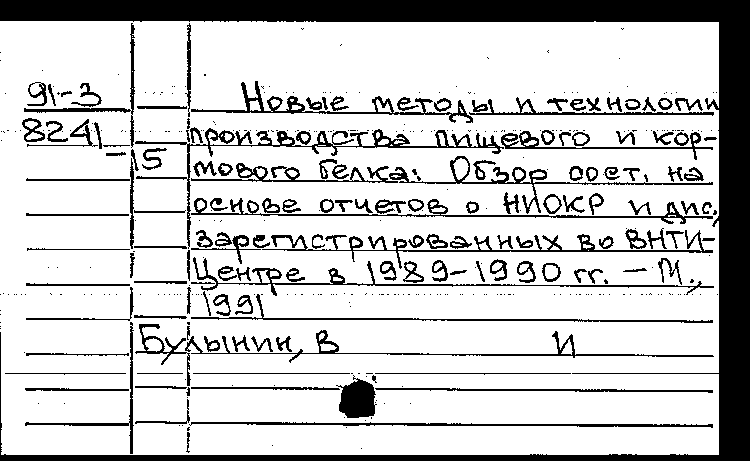 91-3
8241-15
Новые методы и технологии
производства пищевого и кор-
мового белка: Обзор сост. на
основе отчетов о НИОКР и дис,
зарегистрированных во ВНТИ-
Центре в 1989-1990 гг. - М.,
1991
Булынин, В И